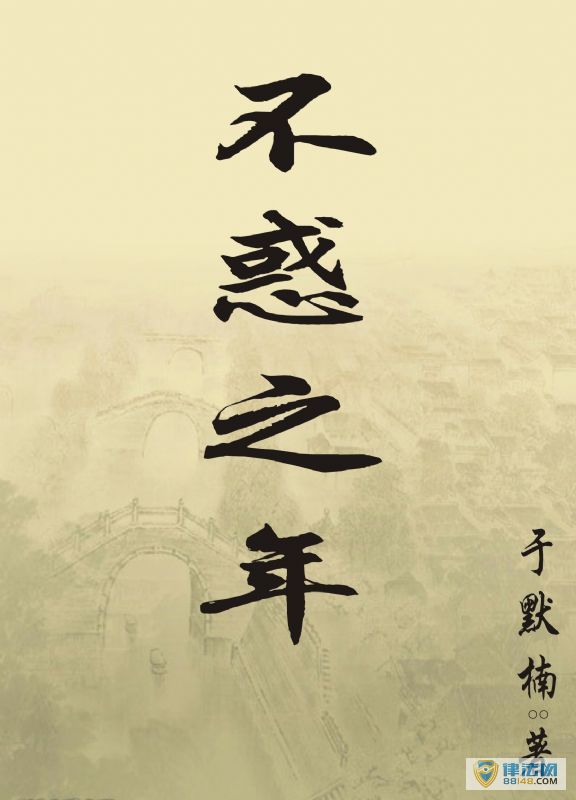 不惑之年
于默楠○○著
律法网
88148.COM